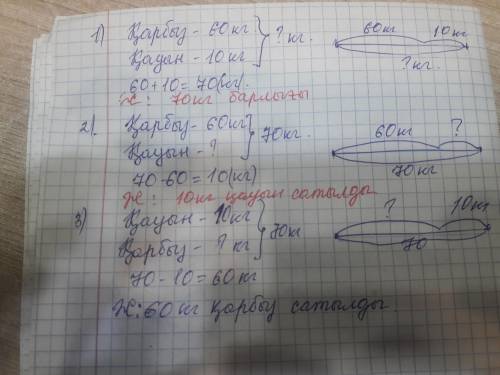 1) Қарбыз - 60кг
Қауын - 10кг
? кг.
60кг 10кг
? кг.
60+10=70(кг).
Ж: 70кг барлығы
2). Қарбыз - 60кг
Қауын - ?
70кг.
60кг ?
70кг
70-60=10(кг)
Ж: 10кг қауын сатылды
3) Қауын - 10кг
Қарбыз - ? кг
70кг
? 10кг
70
70-10=60кг
Ж: 60кг қарбыз сатылды.